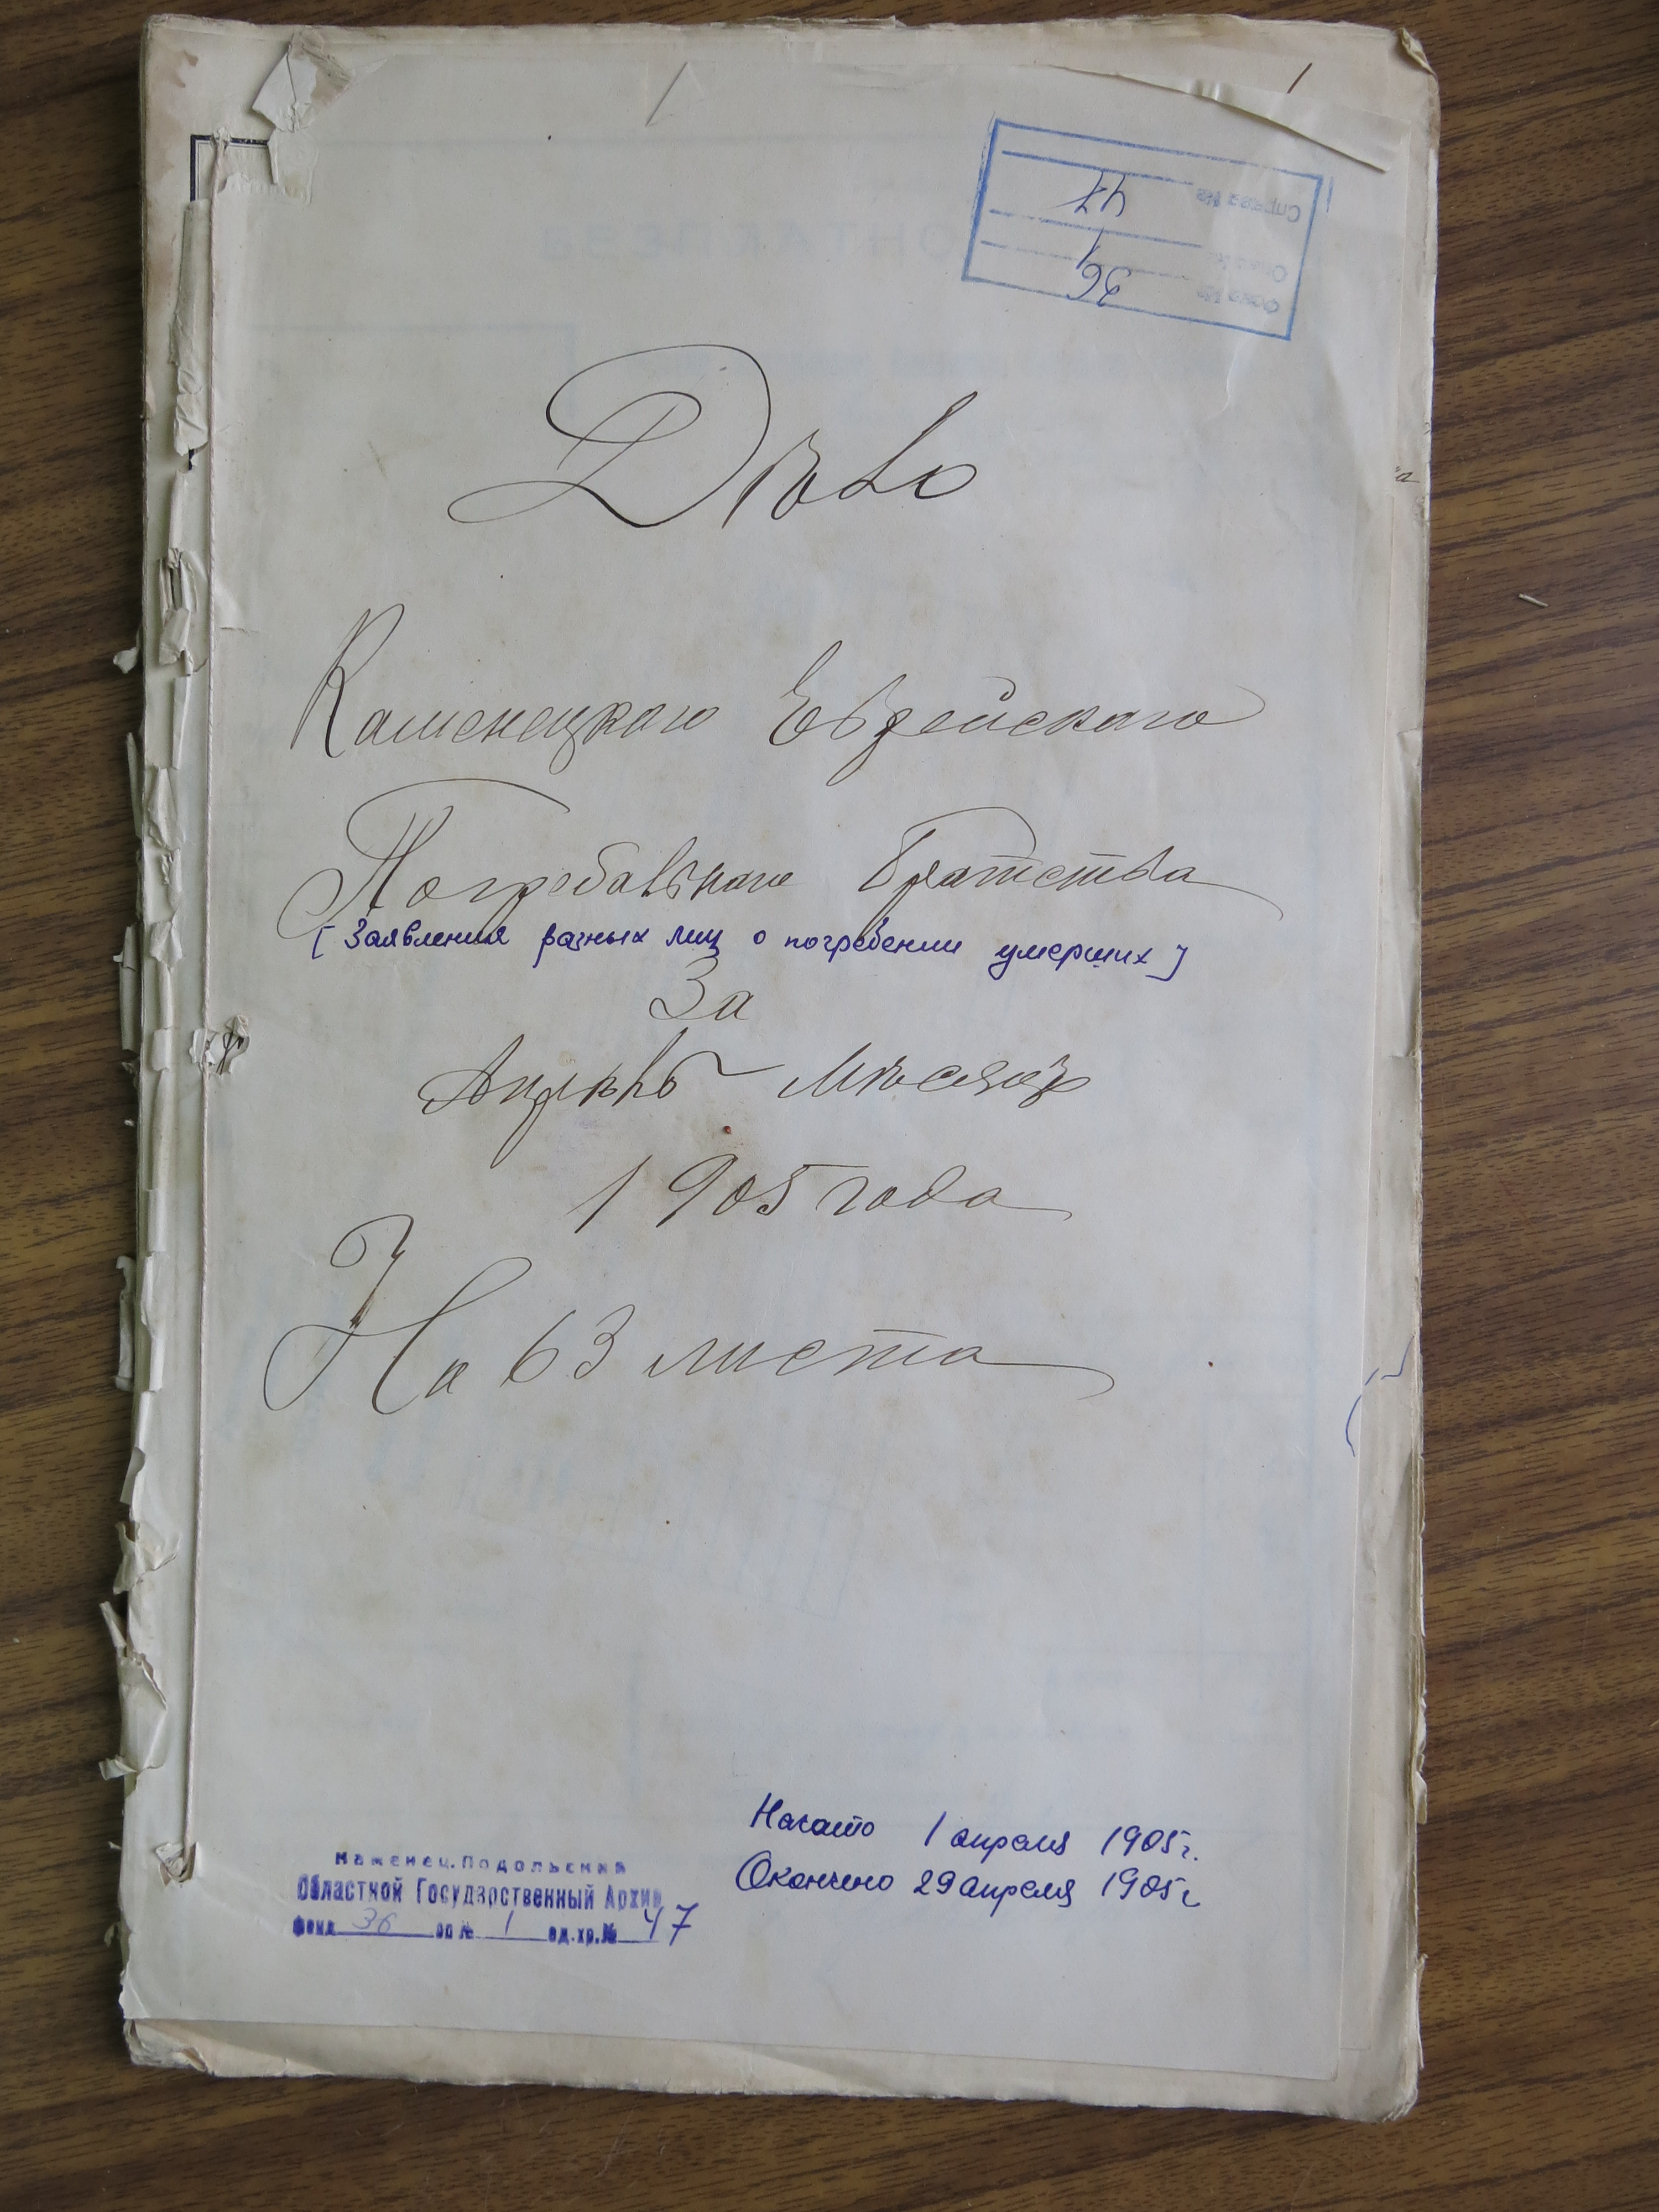 1
Справа № 47
Опис № 1
Фонд № 36
Дѣло
Каменецкаго Еврейскаго
Погребальнаго Братства
[Заявления разных лиц о погребении умерших]
За
Апрѣль Мѣсяцъ
1905 года
На 63 листа
Начато 1 апреля 1905 г.
Окончено 29 апреля 1905 г.
Каменец.Подольский
Областной Государственный Архив
фонд 36 оп № 1 ед.хр.№ 47